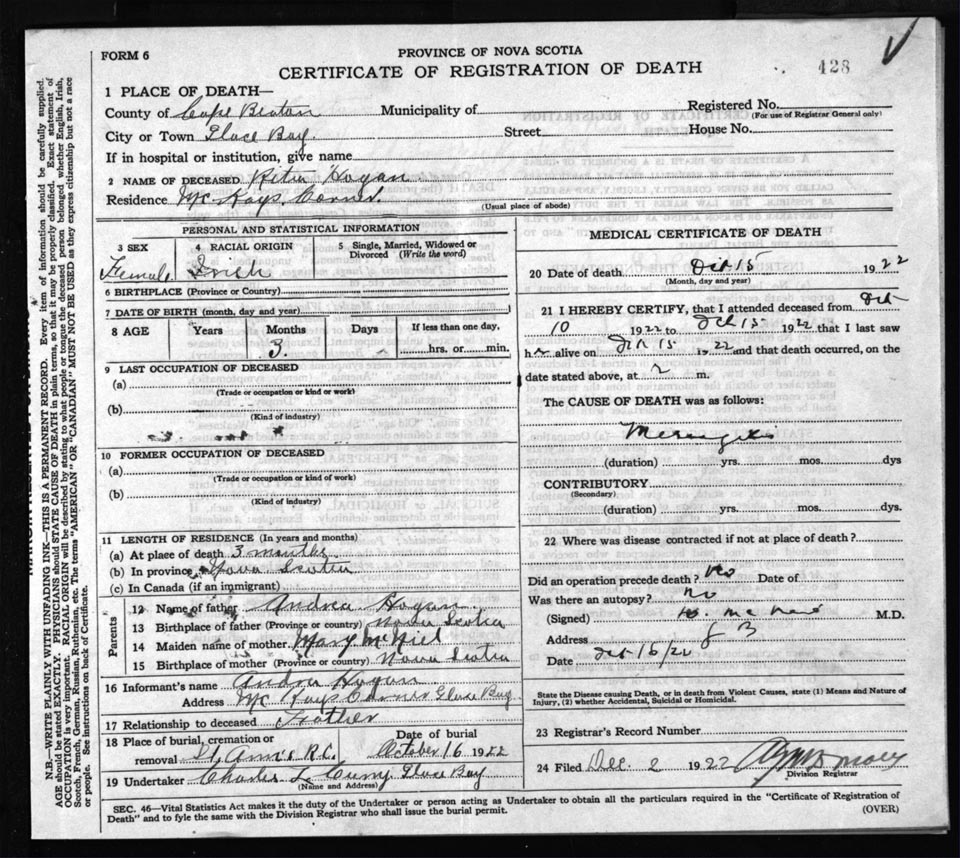 FORM 6
PROVINCE OF NOVA SCOTIA
CERTIFICATE OF REGISTRATION OF DEATH
428
1 PLACE OF DEATH—
County of Cape Breton Municipality of Registered No.
(For use of Registrar General only)
City or Town Glace Bay. Street House No.
If in hospital or institution, give name
2 NAME OF DECEASED Rita Hogan
Residence McKays Corner.
(Usual place of abode)
PERSONAL AND STATISTICAL INFORMATION
3 SEX 4 RACIAL ORIGIN 5 Single, Married, Widowed or Divorced (Write the word)
Female Irish
6 BIRTHPLACE (Province or Country)
7 DATE OF BIRTH (month, day and year)
8 AGE Years Months Days If less than one day,
3. hrs. or min.
9 LAST OCCUPATION OF DECEASED
(a)
(Trade or occupation or kind or work)
(b)
(Kind of industry)
10 FORMER OCCUPATION OF DECEASED
(a)
(Trade or occupation or kind of work)
(b)
(Kind of industry)
11 LENGTH OF RESIDENCE (In years and months)
(a) At place of death 3 months
(b) In province Nova Scotia
(c) In Canada (if an immigrant)
Parents
12 Name of father Andrea Hogan
13 Birthplace of father (Province or country) Nova Scotia
14 Maiden name of mother Mary McNiel
15 Birthplace of mother (Province or country) Nova Scotia
16 Informant's name Andrea Hogan
Address McKays Corner Glace Bay
17 Relationship to deceased Father
18 Place of burial, cremation or removal Date of burial
St Ann's R.C. October 16 1922
19 Undertaker Charles Curry Glace Bay
(Name and Address)
MEDICAL CERTIFICATE OF DEATH
20 Date of death Oct 15 1922
(Month, day and year)
21 I HEREBY CERTIFY, that I attended deceased from Oct
10 1922 to Oct 15 1922 that I last saw
h alive on Oct 15 1922 and that death occurred, on the
date stated above, at 2 m.
The CAUSE OF DEATH was as follows:
Meningitis
(duration) yrs. mos. dys
CONTRIBUTORY
(Secondary)
(duration) yrs. mos. dys.
22 Where was disease contracted if not at place of death?
Did an operation precede death? No Date of
Was there an autopsy? No
(Signed) M.D.
Address G B
Date Oct 16/22
State the Disease causing Death, or in death from Violent Causes, state (1) Means and Nature of Injury, (2) whether Accidental, Suicidal or Homicidal.
23 Registrar's Record Number
24 Filed Dec. 2 1922
Division Registrar
SEC. 46—Vital Statistics Act makes it the duty of the Undertaker or person acting as Undertaker to obtain all the particulars required in the "Certificate of Registration of
Death" and to fyle the same with the Division Registrar who shall issue the burial permit. (OVER)
N.B.—WRITE PLAINLY WITH UNFADING INK—THIS IS A PERMANENT RECORD. Every item of information should be carefully supplied.
AGE should be stated EXACTLY. PHYSICIANS should STATE CAUSE OF DEATH in plain terms, so that it may be properly classified. Exact statement of
OCCUPATION is very important. RACIAL ORIGIN will be described by stating to what people or tongue the deceased person belonged whether English, Irish,
Scotch, French, German, Russian, Ruthenian, etc. The terms "AMERICAN" OR "CANADIAN" MUST NOT BE USED as they express citizenship but not a race
or people. See instructions on back of Certificate.